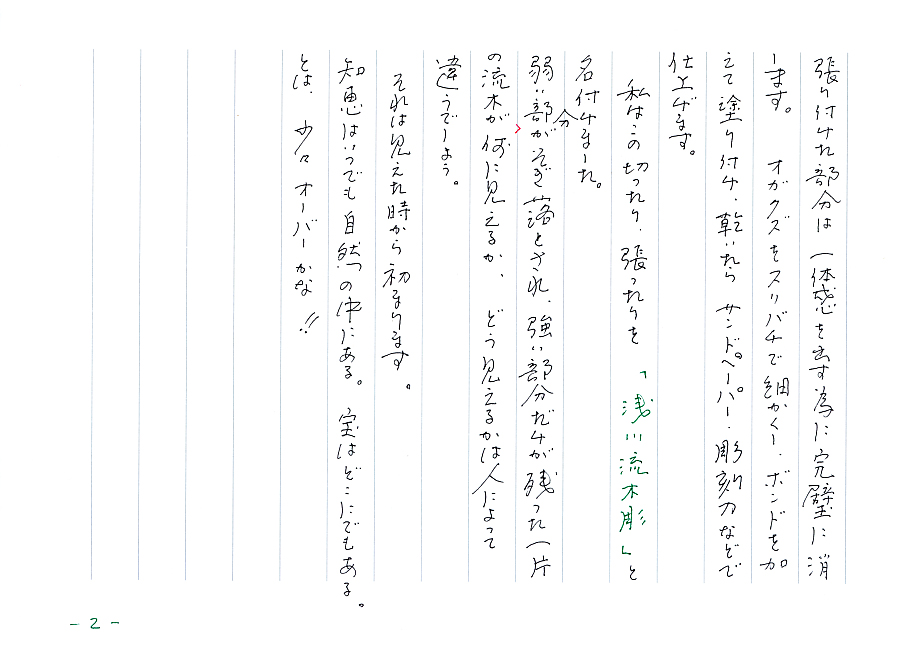 張り付けた部分は一体感を出す為に完璧に消
します。　オガクズをスリバチで細かくし、ボンドを加
えて塗り付け、乾いたら サンドペーパー、彫刻刀などで
仕上げます。
私はこの切ったり、張ったりを 「浅川流木彫」と
名付けました。
弱い部分がそぎ落とされ、強い部分だけが残った一片
の流木が何に見えるか、　どう見えるかは人によって
違うでしょう。
それは見えた時から初まります。
知恵はいつでも自然の中にある。　宝はどこにでもある。
とは、少々オーバーかな!!
- 2 -